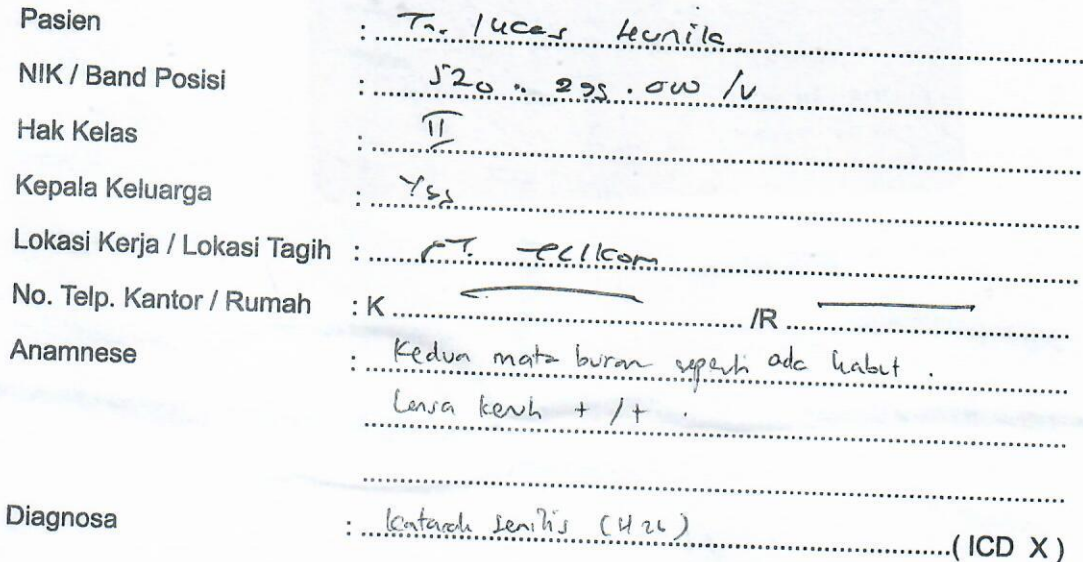 Pasien : Tn. lucas
NIK / Band Posisi : 520 /V
Hak Kelas : II
Kepala Keluarga : Yss
Lokasi Kerja / Lokasi Tagih : PT. Telkom
No. Telp. Kantor / Rumah : K /R
Anamnese : Kedua mata buram seperti ada kabut .
Lensa keruh + / + .
Diagnosa : Katarak senilis (H26) (ICD X)